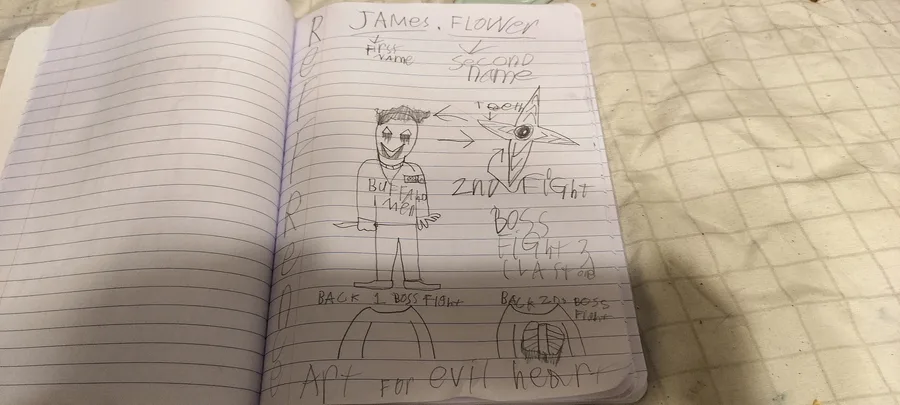 JAMES. FLOWER
First name
Second name
Teeth
BUFFALO
Men
2ND FIGht
BOSS
FIGht 2
(LAST one
BACK 1 BOSS FIGht
BACK 2ND BOSS
Fight
Art FOR evil heart